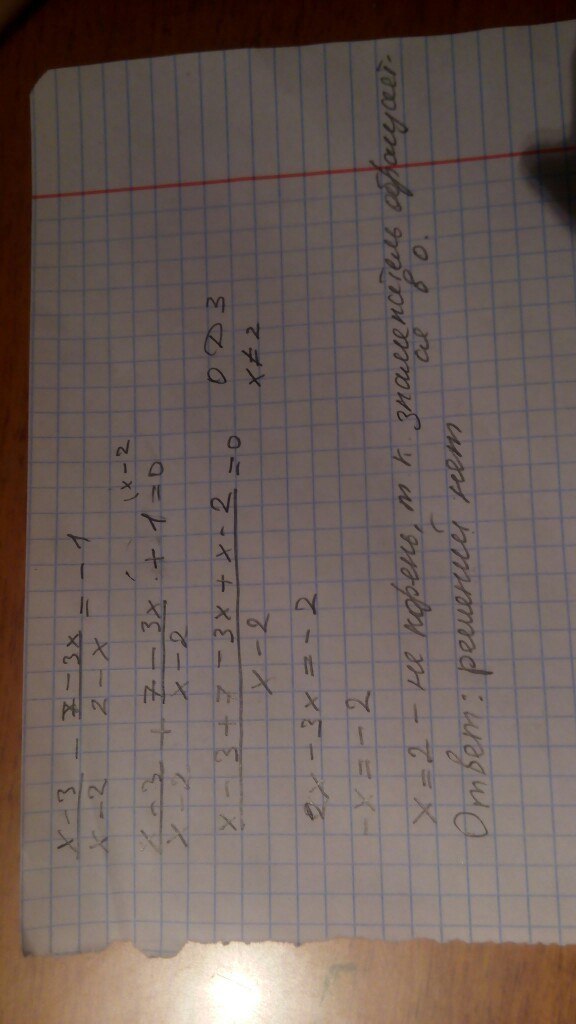 x-3/x-2 - 7-3x/2-x = -1
x-3/x-2 + 7-3x/x-2 + 1 = 0 (x-2
x-3+7-3x+x-2/x-2 = 0 ОДЗ x≠2
2x-3x=-2
-x=-2
x=2 - не корень, т к знаменатель обращает-
ся в 0.
Ответ: решений нет